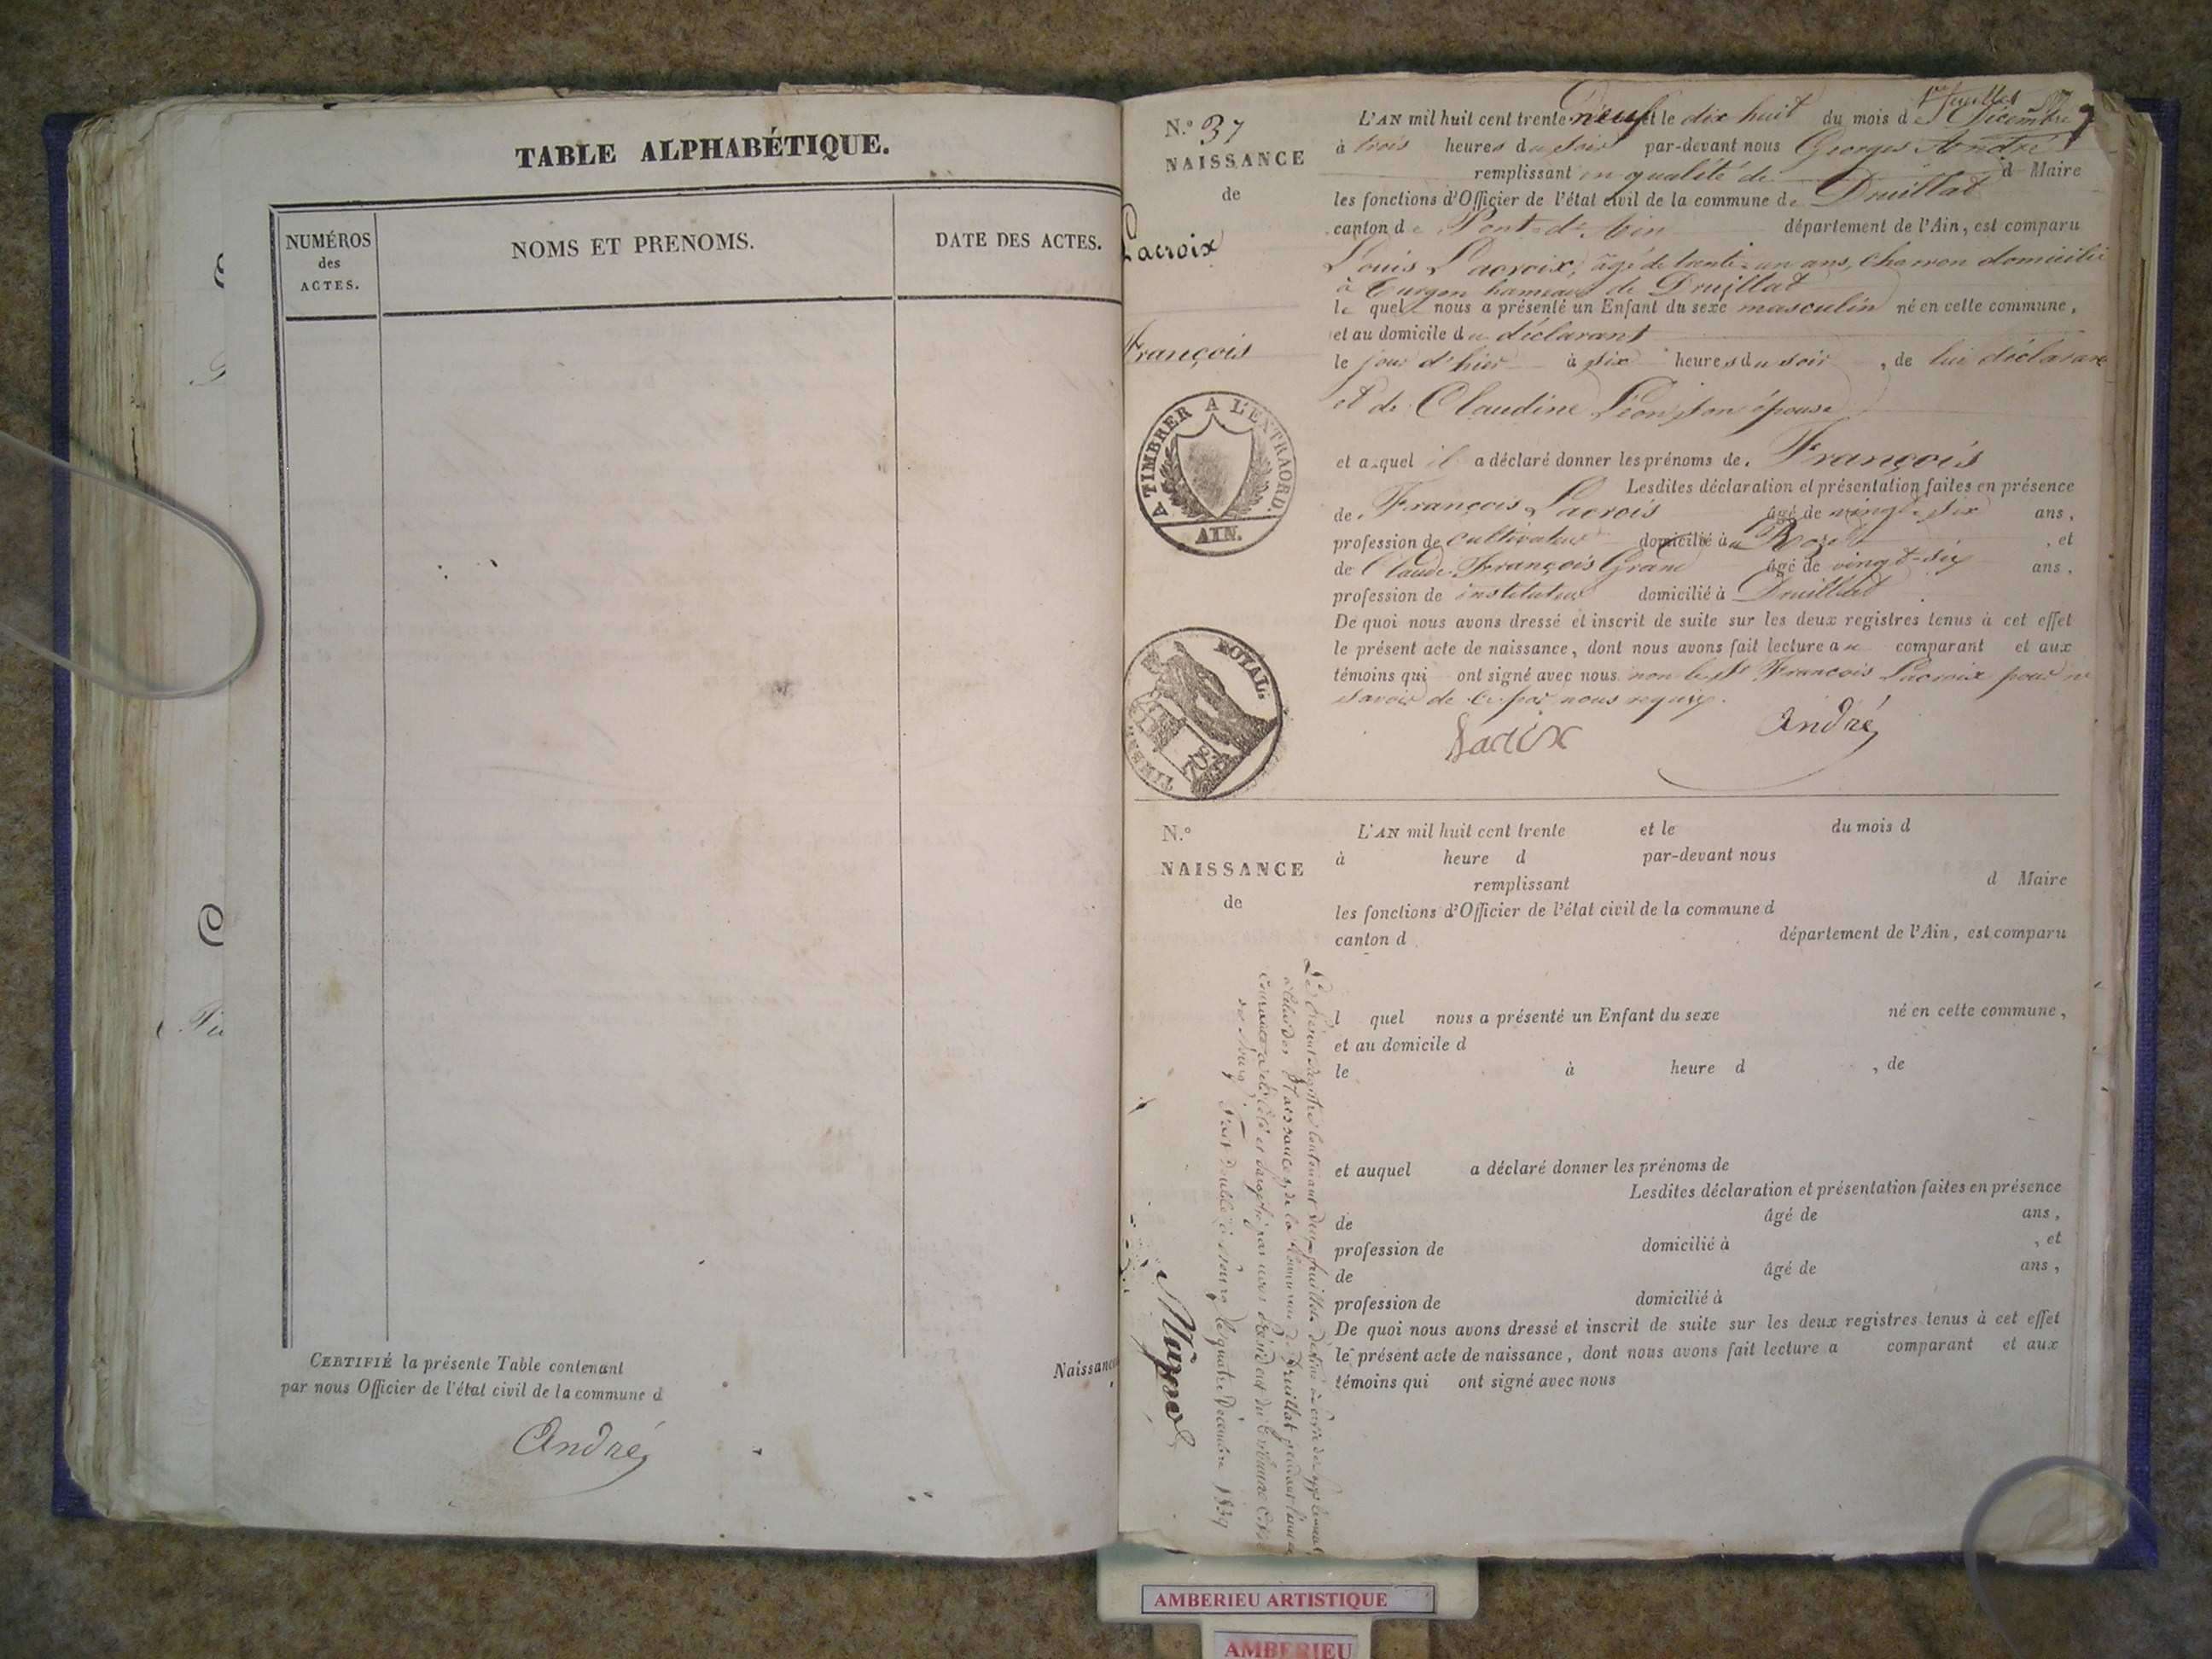 TABLE ALPHABÉTIQUE.
NUMÉROS
des
ACTES.
NOMS ET PRENOMS.
DATE DES ACTES.
CERTIFIÉ la présente Table contenant
Naissance
par nous Officier de l'état civil de la commune d
André
N.o 37
NAISSANCE
de
Lacroix
François
A TIMBRER A L'EXTRAORD.
AIN.
TIMBRE
ROYAL.
1er feuillet
L'AN mil huit cent trente neuf et le dix huit du mois de Décembre
à trois heures du soir par-devant nous Georges André
remplissant en qualité de d Maire
les fonctions d'Officier de l'état civil de la commune de Druillat
canton de Pont-d'Ain département de l'Ain, est comparu
Louis Lacroix, âgé de trente-un ans, charron domicilié
à Turgon hameau de Druillat
lequel nous a présenté un Enfant du sexe masculin né en cette commune,
et au domicile du déclarant
le jour d'hier à six heures du soir, de lui déclarant
et de Claudine Léon, son épouse
et auquel il a déclaré donner les prénoms de François
Lesdites déclaration et présentation faites en présence
de François Lacroix âgé de vingt-six ans,
profession de cultivateur domicilié à, et
de Claude François Grand âgé de vingt-six ans,
profession de instituteur domicilié à Druillat
De quoi nous avons dressé et inscrit de suite sur les deux registres tenus à cet effet
le présent acte de naissance, dont nous avons fait lecture au comparant et aux
témoins qui ont signé avec nous non le Sr François Lacroix pour ne
savoir de ce par nous requis.
Lacroix
André
N.o
NAISSANCE
de
L'AN mil huit cent trente et le du mois d
à heure d par-devant nous
remplissant d Maire
les fonctions d'Officier de l'état civil de la commune d
canton d département de l'Ain, est comparu
l quel nous a présenté un Enfant du sexe né en cette commune,
et au domicile d
le à heure d, de
et auquel a déclaré donner les prénoms de
Lesdites déclaration et présentation faites en présence
de âgé de ans,
profession de domicilié à, et
de âgé de ans,
profession de domicilié à
De quoi nous avons dressé et inscrit de suite sur les deux registres tenus à cet effet
le présent acte de naissance, dont nous avons fait lecture a comparant et aux
témoins qui ont signé avec nous
Le présent registre contenant feuillets destiné à
des Naissances, de la Commune de Druillat pendant l'année
a été coté et paraphé par nous Président du tribunal civil
de Bourg. Fait double à Bourg le quatre Décembre 1839
AMBERIEU ARTISTIQUE
AMBERIEU